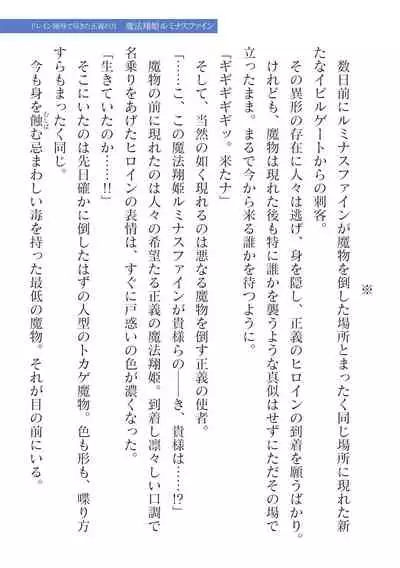 ドレイン陵辱で尽きた正義の力　魔法翔姫ルミナスファイン
※
数日前にルミナスファインが魔物を倒した場所とまったく同じ場所に現れた新
たなイビルゲートからの刺客。
その異形の存在に人々は逃げ、身を隠し、正義のヒロインの到着を願うばかり。
けれども、魔物は現れた後も特に誰かを襲うような真似はせずにただその場で
立ったまま。まるで今から来る誰かを待つように。
「ギギギギギッ。来たナ」
そして、当然の如く現れるのは悪なる魔物を倒す正義の使者。
「……こ、この魔法翔姫ルミナスファインが貴様らの――き、貴様は……!?」
魔物の前に現れたのは人々の希望たる正義の魔法翔姫。到着し凛々しい口調で
名乗りをあげたヒロインの表情は、すぐに戸惑いの色が濃くなった。
「生きていたのか……!!」
そこにいたのは先日確かに倒したはずの人型のトカゲ魔物。色も形も、喋り方
すらもまったく同じ。
今も身を蝕む忌まわしい毒を持った最低の魔物。それが目の前にいる。
むしば